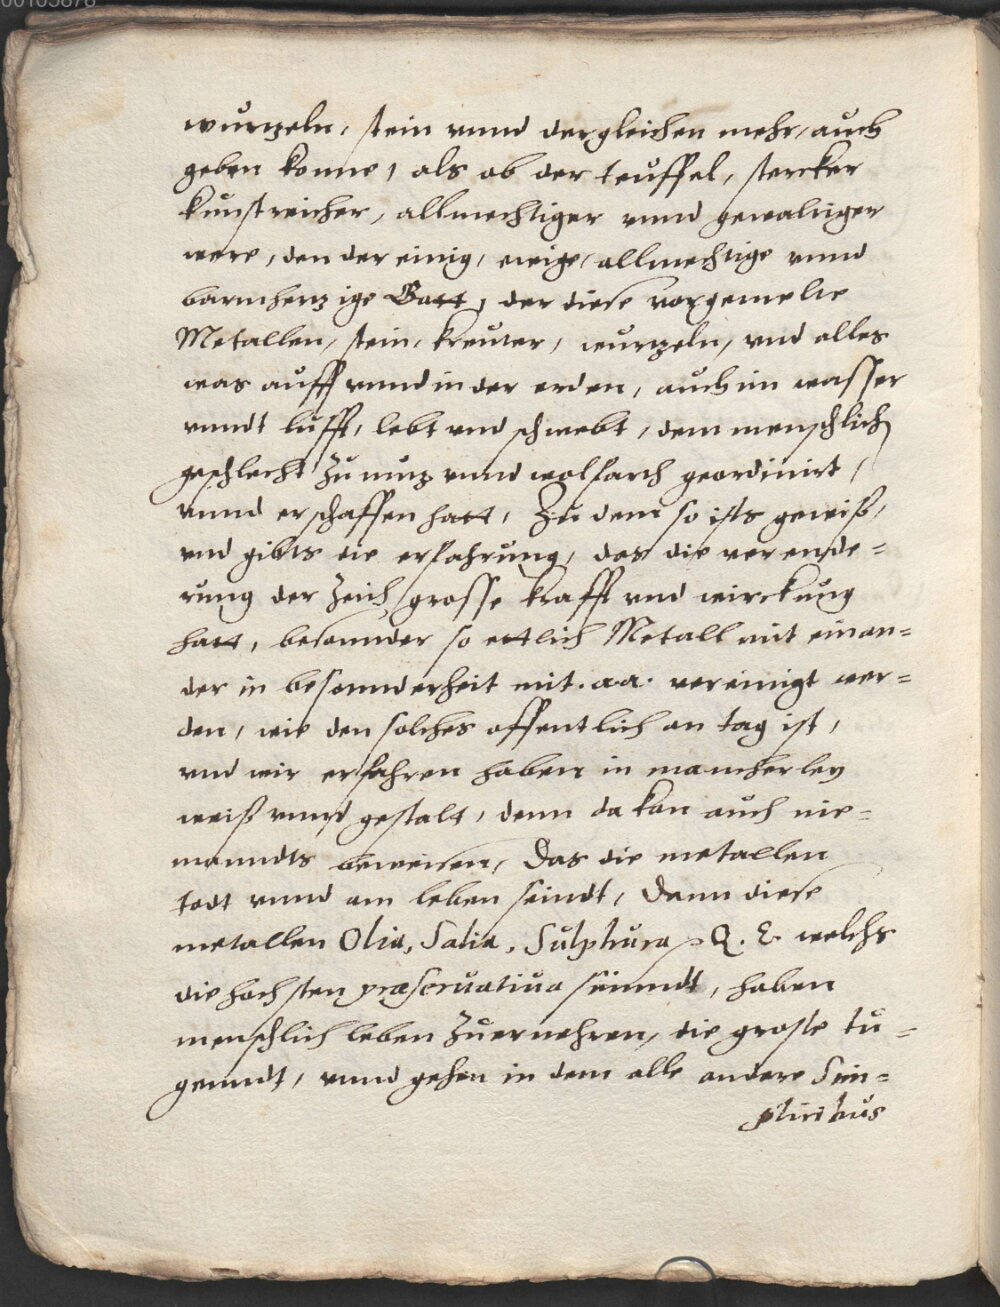 00105878
wurtzeln, stein vnnd dergleichen mehr, auch
geben könne, als ob der teuffel, stercker
kunstreicher, allmechtiger vnnd gewaltiger
were, den der einig, ewige, allmechtige vnnd
barmhertzige Gott, der diese vorgemelte
Metallen, stein, kreuter, wurtzeln, vnd alles
was auff vnnd in der erden, auch im wasser
vnndt lufft, lebt vnd schwebt, dem menschlich
geschlecht zu nutz vnnd wolfarth geordinirt,
vnnd erschaffen hatt, Zu dem so ists gewiß,
vnd gibts die erfahrung, das die verende=
rung der Zeich grosse krafft vnd wirckung
hatt, besonnder so ettlich Metall mit einan=
der in besonnderheit mit .aa. vereinigt wer=
den, wie den solches offentlich an tag ist,
vnd wir erfahren haben in mancherley
weiß vnnd gestalt, denn da kan auch nie=
manndts beweisen, Das die metallen
todt vnnd am leben seindt, Dann diese
metallen Olia, Salia, Sulphura, Q. E. welchs
die hochsten præseruatiua seinndt, haben
menschlich leben Zuernehren, die groste tu=
genndt, vnnd gehen in dem alle andere Sim=
plicibus